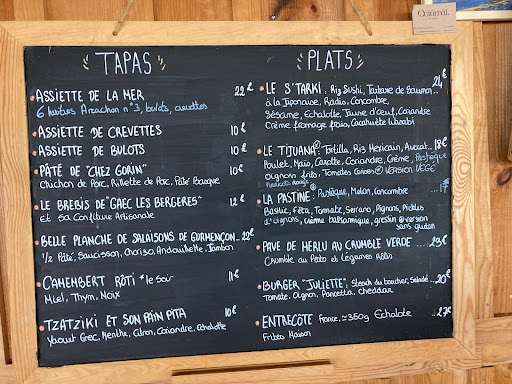 Ocirimat
TAPAS
ASSIETTE DE LA MER 22€
6 huîtres Arcachon n°3, bulots, crevettes
ASSIETTE DE CREVETTES 10€
ASSIETTE DE BULOTS 10€
PÂTÉ DE "CHEZ GORIN" 10€
Chichon de Porc, Rillette de Porc, Pâté Basque
LE BREBIS DE "GAEC LES BERGERES" 12€
et sa Confiture Artisanale
BELLE PLANCHE DE SALAISONS DE GURMENÇON...22€
1/2 Pâté, Saucisson, Chorizo, Andouillette, Jambon
CAMEMBERT RÔTI *le soir 11€
Miel, Thym, Noix
TZATZIKI ET SON PAIN PITA 10€
Yaourt Grec, Menthe, Citron, Coriandre, Echalotte
PLATS
LE S'TARKI : Riz Sushi, Tartare de Saumon... 24€
à la Japonaise, Radis, Concombre,
Sésame, Echalotte, Jaune d'oeuf, Coriandre
Crème fromage frais, Cacahuète Wasabi
LE TIJUANA : Tortilla, Riz Mexicain, Avocat... 18€
Poulet, Maïs, Carotte, Coriandre, Crème, Pastèque
Oignons frits, Tomates Cerises VERSION VEGE
Haricots Rouges
LA PASTINE : Pastèque, Melon, Concombre
Basilic, Féta, Tomate, Serrano, Pignons, Pickles
d'oignons, crème balsamique, gressin version
sans gluten
PAVE DE MERLU AU CRUMBLE VERDE ....23€
Crumble au Pesto et Légumes Rôtis
BURGER "JULIETTE" : Steack du boucher, Salade...20€
Tomate, Oignon, Pancetta, Cheddar
ENTRECÔTE France, ≃350g Echalote ...27€
Frites Maison